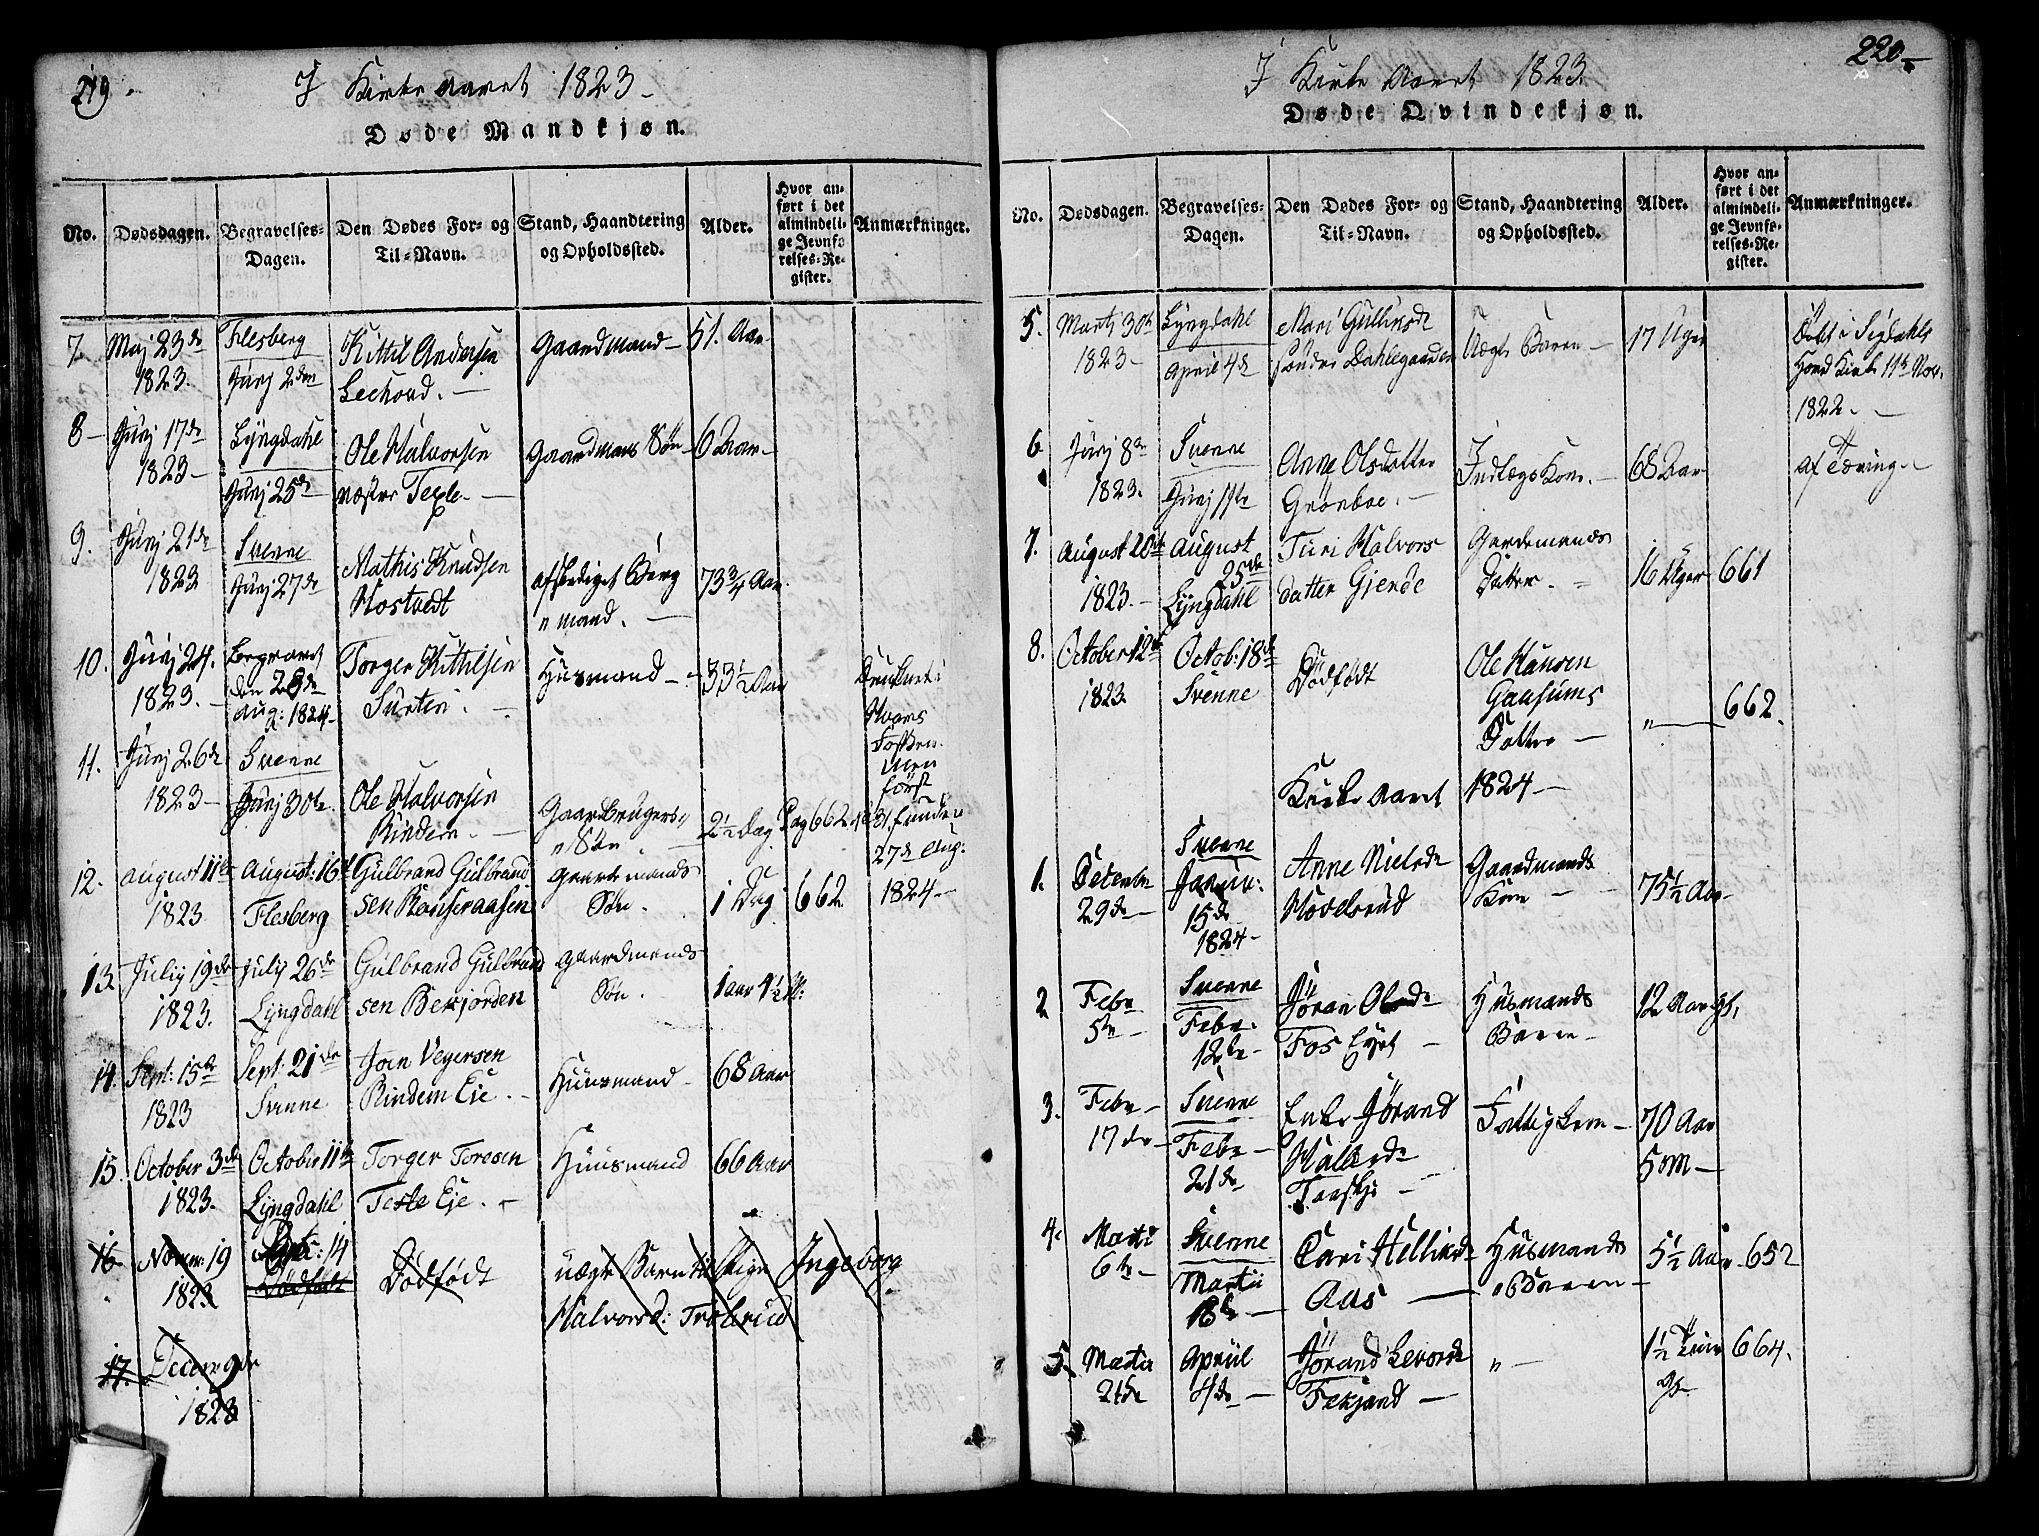 219.
I Kirke aaret 1823
Døde Mandkjøn.
No.
Dødsdagen.
Begravelses-
Dagen.
Den Dødes For- og
Til-Navn.
Stand, Haandtering
og Opholdssted.
Alder.
Hvor an-
ført i det
almindeli-
ge Jevnfø
relses-Re-
gister.
Anmærkninger.
7. Maj 23de 1823. Flesberg Junj 2den Kittil Andersen Gaardmand 51. Aar
8 Junj 17de 1823 Lyngdahl Junj 25de Ole Halvorsen Gaardmans Søn 6 Aar
9. Junj 21de 1823 Svenne Junj 27de Mathis Knudsen Hostvedt afskediget Berg
"mand. 73 3/4 Aar
10. Junj 24. 1823. Begravet den Aug: 1824 Torger Kittilsen Surtei. Husmand 33 1/2 Aar
Først
funden
27de Aug:
1824
11. Junj 26de 1823 Svenne Junj 30te Ole Halvorsen Rindem. Gaardbrugers
"Søn 2 1/2 Dag Pag 662
12. August 11te 1823 August: 16 Flesberg Gulbrand Gulbrand
sen Gaardmands
Søn. 1 Dag 662
13. Julij 19de 1823. July 26de Lyngdahl Gulbrand Gulbrand
sen Bekjorden Gaardmands
Søn. 1 aar
14. Sept: 15de 1823 Sept: 21de Svenne Joen Vegersen
Rindem Eje. Huusmand 68 Aar
15. October 3de 1823. October 11te Lyngdahl Torger Toresen
Teste Eje. Huusmand 66 Aar
16 Novem: 19 1823 14 Dødfødt Dødfødt uægte Barn til Pige Ingeborg
Halvorsd:
17. Decem 9de
1823
220
I Kirke Aaret 1823
Døde Qvindekjøn.
No.
Dødsdagen.
Begravelses-
Dagen.
Den Dødes For- og
Til-Navn.
Stand, Haandtering
og Opholdssted.
Alder.
Hvor an-
ført i det
almindeli-
ge Jevnfø-
relses-Re-
gister.
Anmærkninger.
5. Martj 30te 1823 Lyngdahl April 4de Mari Gullissdr
søndre Dahlegaarden Uægte Barn 17 Uger Døbt i Sigdahls
Hoved Kirke 11te Nov.
1822.
6 Junj 8de 1823. Svenne Anne Olsdatter
Grønboe. Indlægs Kone. 68 Aar af Tæring
7. August 20de 1823. August 25de Lyngdahl Turi Halvors
datter Gjende Gardsmands
Datter. 16 Uger 661
8. October 12te 1823 Octob: 18de Svenne Dødfødt Ole Hansen
Gaasums
Datter " 662.
Kirke Aaret 1824
1. December 29de Svenne Januar: 15de 1824 Anne Nielsdr
Hovelsrud Gaardmands
Kone 75 1/2 Aar
2 Febr 5te Svenne Febr: 12te Jöran Olsdr
Fos Eyet Husmands
Barn 12 Aar
3. Febr 17de Svenne Febr 21de Enke Jörand
Fattiglem 70 Aar
5 M
4. Marti 6te Svenne Martii 18de Kari Helliksdr
Aas Husmands
Barn 5 1/2 Aar 652
5. Martii 21de April 4de Jörand
Fekjand " 1 1/2 664.